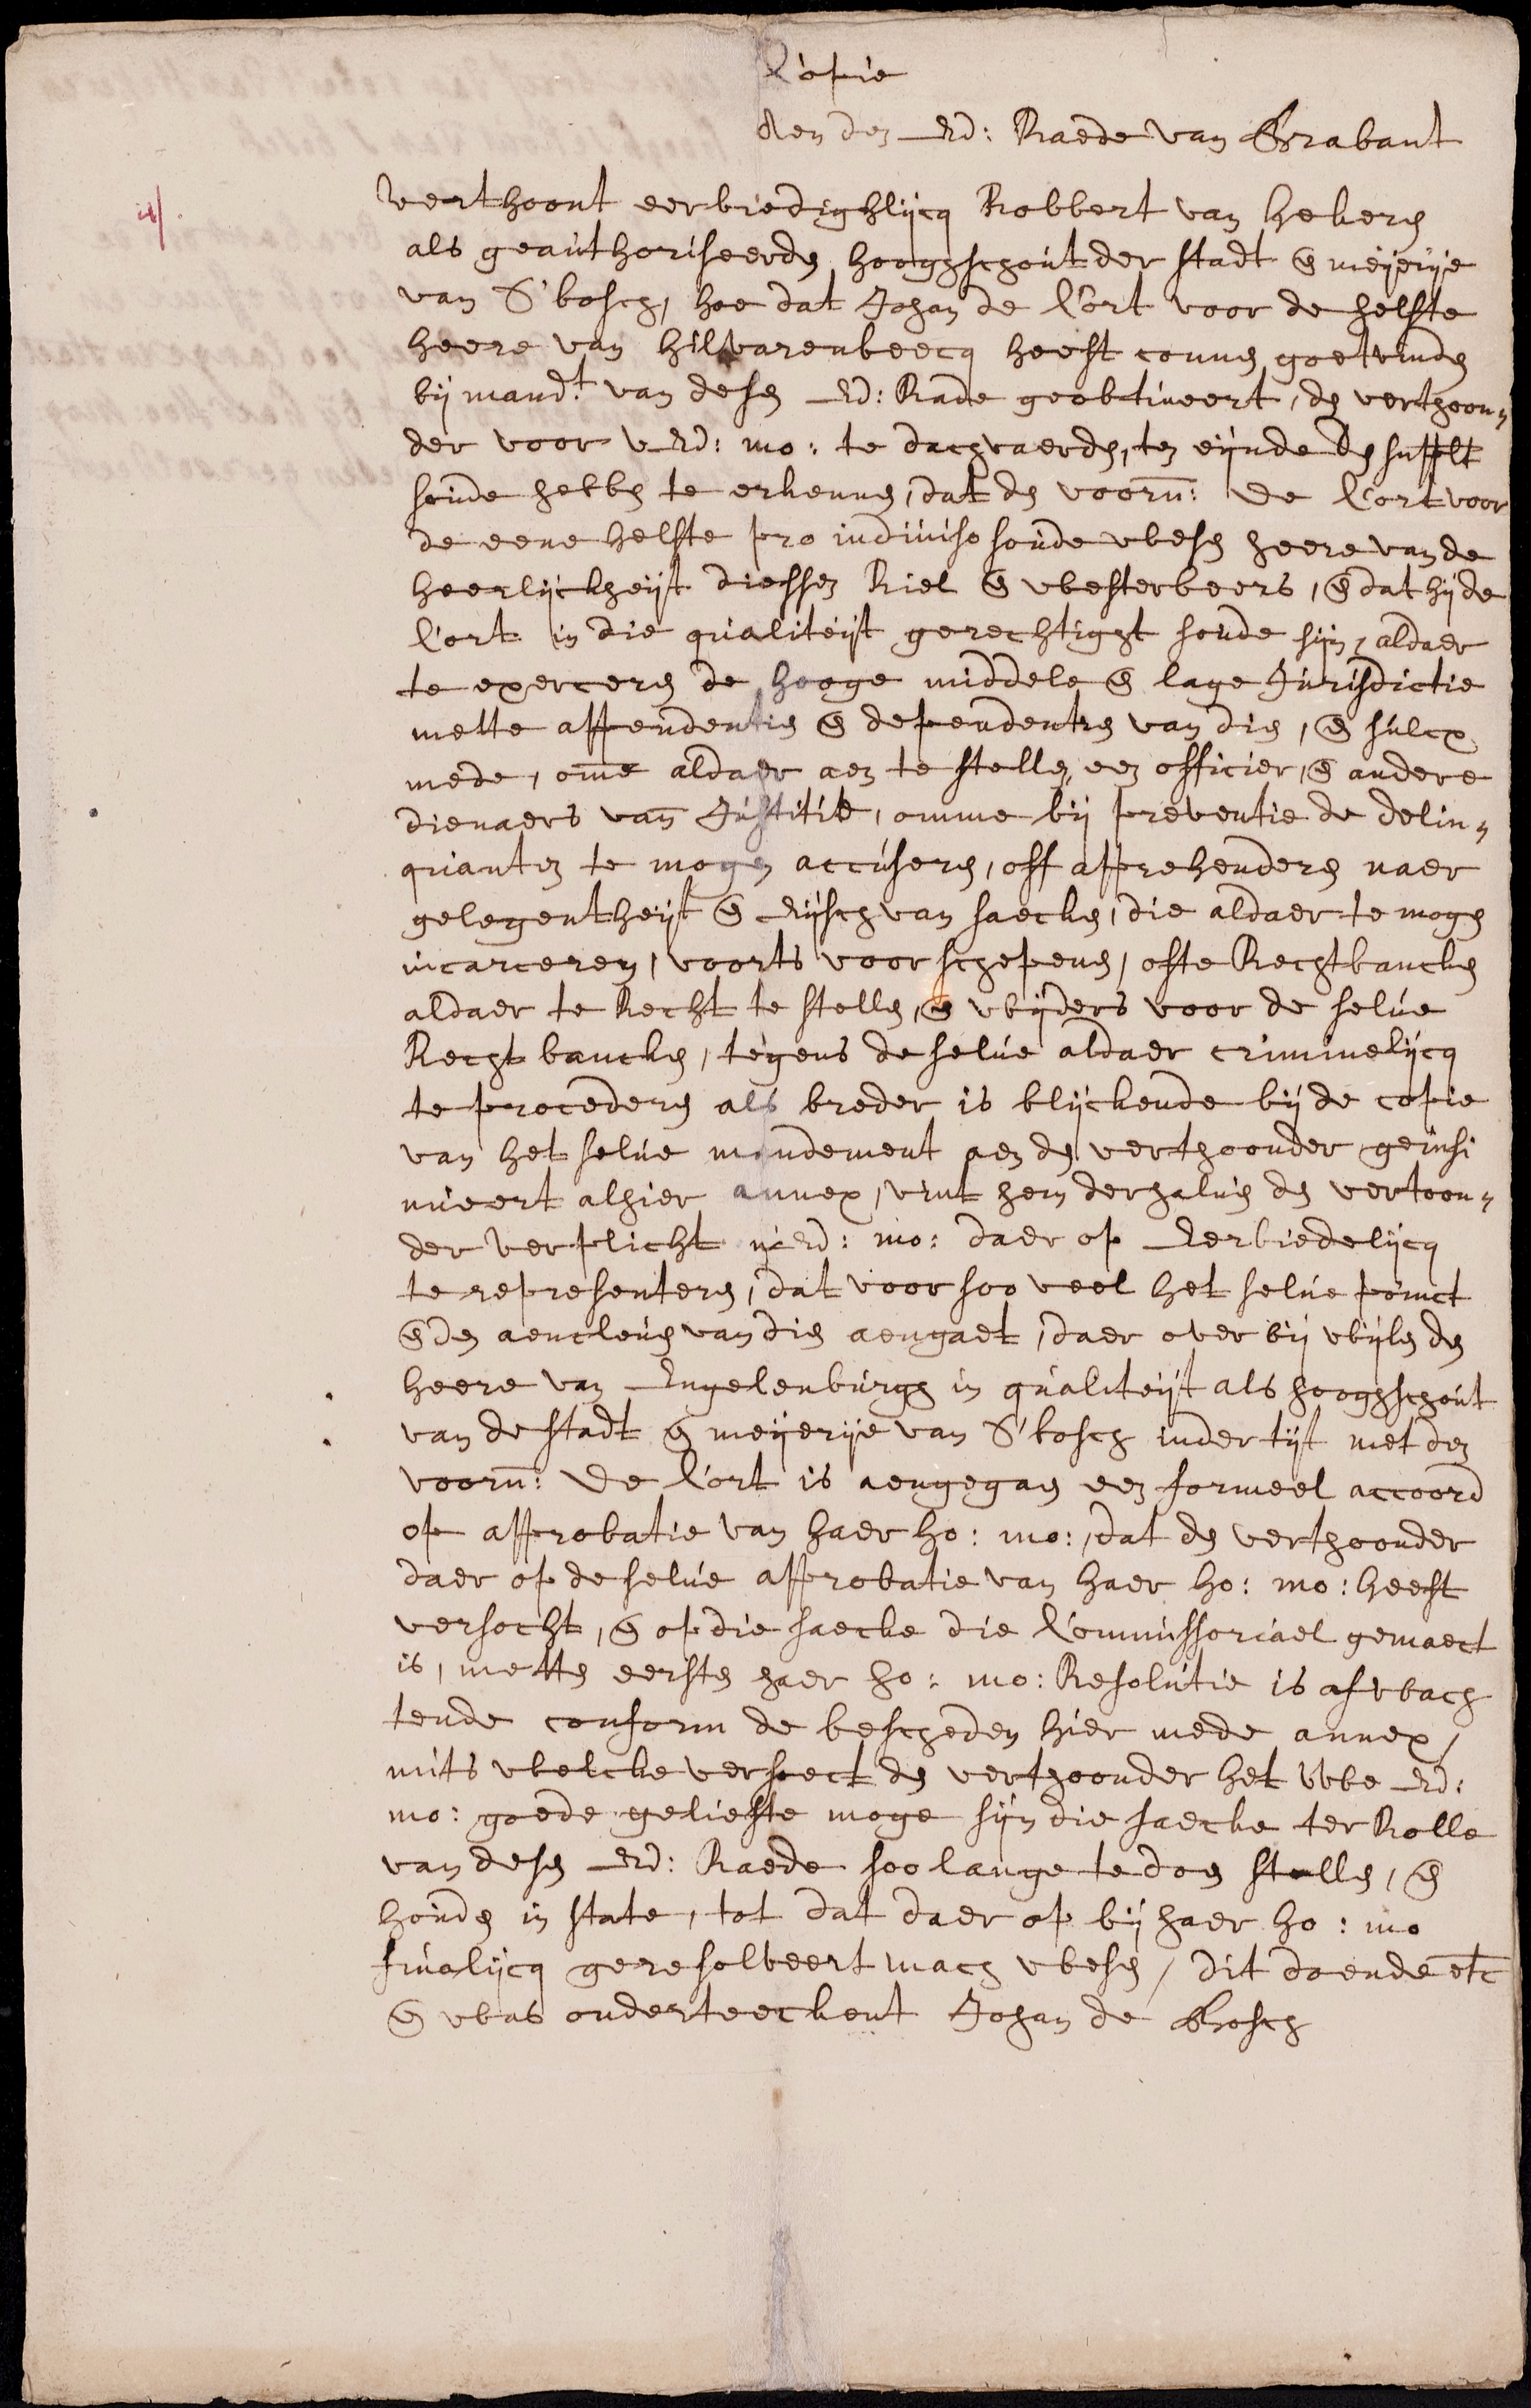 Copie
Aen den Ed: Raede van Brabant
Verthoont eerbiedighlijcq Robbert van hekeren
als geauthoriseerde hooghschout der stadt en meijerije
van S'bosch, hoe dat Johan de Cort voor de helfte
heere van hilvarenbeecq heeft connen goetvinden
bij mand:t van desen Ed: Rade geobtineert, den verthoon„
der voor v Ed: mo: te dachvaerden, ten eijnde den supplt
soude hebben te erkennen, dat den voorn: de Cort voor
de eene helfte pro indiviso soude wesen heere van de
heerlijckheijt diessen Riel en westerbeers, en dat hij de
Cort in die qualiteijt gerechtight soude sijn, aldaer
te exerceren de hooge middele en lage Jurisdictie
mette appendentien en dependentien van dien, en sulcx
mede, omme aldaer aen te stellen, een officier, en andere
dienaers van Justitie, omme bij preventie de delin„
quanten te mogen accuseren, off apprehenderen naer
gelegentheijt en eijsch van saecken, die aldaer te mogen
incarceren, voorts voor schepenen, ofte Rechtbancken
aldaer te Recht te stellen, en wijders voor de selve
Recht bancken, tegens de selve aldaer criminelijcq
te procederen als breder is blijckende bij de copie
van het selve mandement aen den verthoonder geinsi
nueert alhier annex, vint hem derhalven den vertoon„
der verplicht u Ed: mo: daer op Eerbiedelijcq
te representeren, dat voor soo veel het selve poinct
en den aencleven van dien aengaet, daer over bij wijlen den
heere van Engelenburgh in qualiteijt als hooghschout
van de stadt en meijerije van S'bosch indertijt met den
voorn: de Cort is aengegaen een formeel accoord
op approbatie van haer ho: mo:, dat den verthoonder
daer op de selve approbatie van haer ho: mo: heeft
versocht, en op die saecke die Commissoriael gemaect
is, metten eersten haer ho: mo: Resolutie is afwach
tende conform de bescheden hier mede annex,
mits welcke versoect den verthoonder het uwe Ed:
mo: goede geliefte moge sijn die saecke ter Rolle
van desen Ed: Raede soo lange te doen stellen, en
houden in state, tot dat daer op bij haer ho: mo
finalijcq geresolveert mach wesen, dit doende etc
en was onderteeckent Johan de Bosch